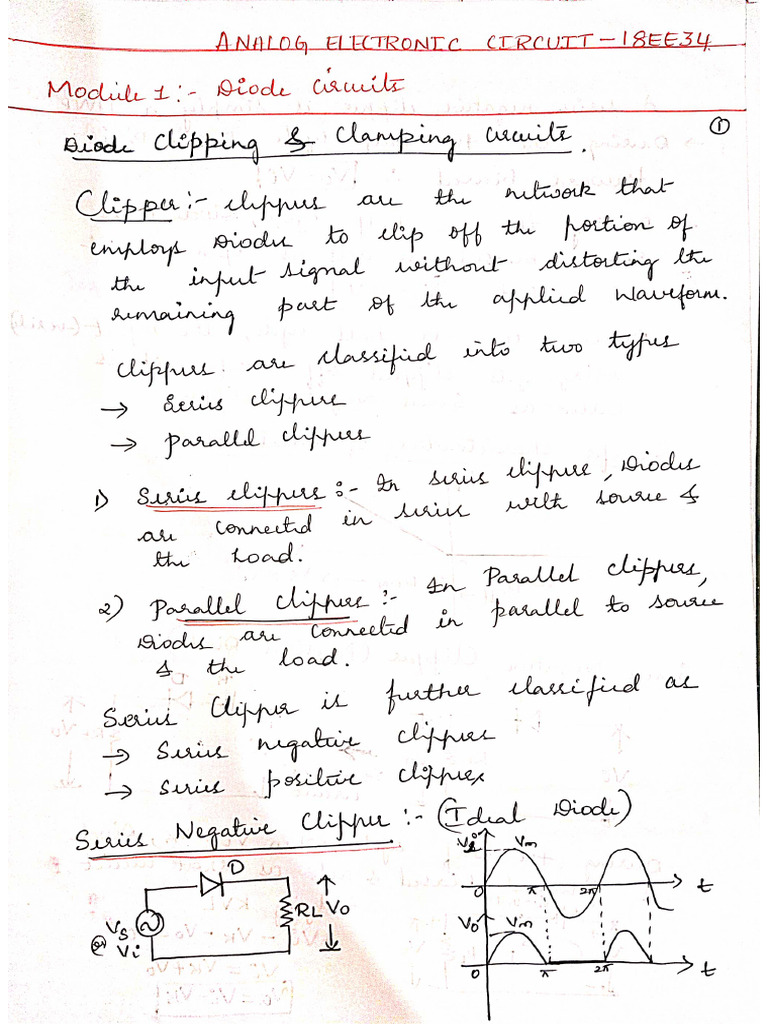 ANALOG ELECTRONIC CIRCUIT - 18EE34
Module 1:- Diode circuits
Diode Clipping & Clamping Circuits.
①
Clipper:- clippers are the network that
employs Diodes to clip off the portion of
the input signal without distorting the
remaining part of the applied waveform.
clippers are classified into two types
→ Series clippers
→ parallel clippers
1) Series clippers:- In series clippers, Diodes
are connected in series with source &
the Load.
2) Parallel clippers:- In Parallel clippers,
Diodes are connected in parallel to source
& the load.
Series Clipper is further classified as
→ Series negative clippers
→ Series positive clippers
Series Negative Clipper:- (Ideal Diode)
D
RL Vo
Vs
or Vi
Vi Vm
0 π 2π t
Vo Vm
0 π 2π t